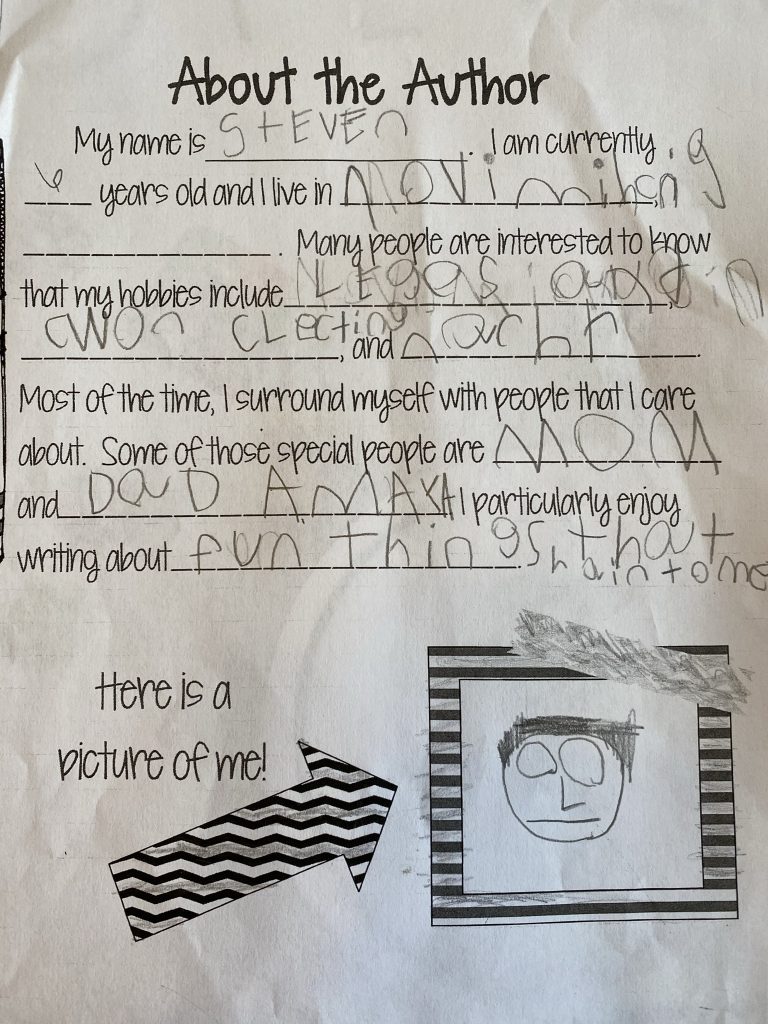 About the Author
My name is STEVEn. I am currently
6 years old and I live in novi mihcn,
. Many people are interested to know
that my hobbies include LEgos and
cwon cLecting, and
Most of the time, I surround myself with people that I care
about. Some of those special people are MOM
and DaD AMAYA I particularly enjoy
writing about fun things that
hain to me
Here is a
picture of me!